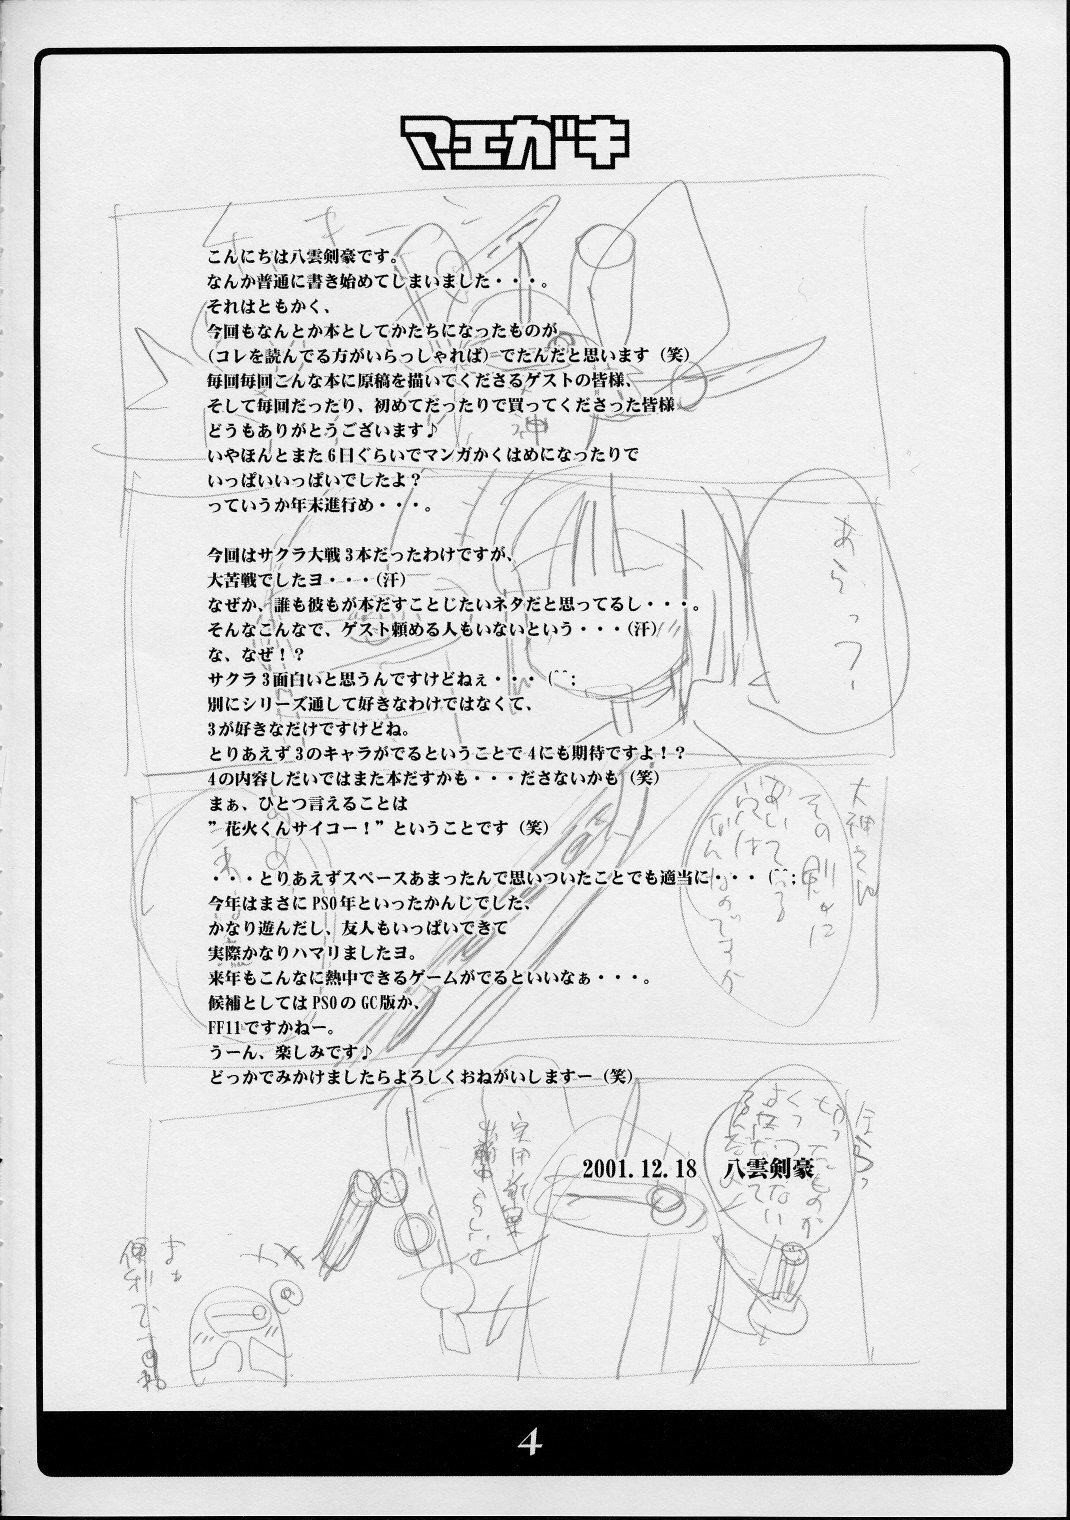 マエガキ
こんにちは八雲剣豪です。
なんか普通に書き始めてしまいました・・・。
それはともかく、
今回もなんとか本としてかたちになったものが
(コレを読んでる方がいらっしゃれば)でたんだと思います(笑)
毎回毎回こんな本に原稿を描いてくださるゲストの皆様、
そして毎回だったり、初めてだったりで買ってくださった皆様
どうもありがとうございます♪
いやほんとまた6日ぐらいでマンガかくはめになったりで
いっぱいいっぱいでしたよ？
っていうか年末進行め・・・。
今回はサクラ大戦3本だったわけですが、
大苦戦でしたヨ・・・(汗)
なぜか、誰も彼もが本だすことじたいネタだと思ってるし・・・。
そんなこんなで、ゲスト頼める人もいないという・・・(汗)
な、なぜ！？
サクラ3面白いと思うんですけどねぇ・・・(^^;
別にシリーズ通して好きなわけではなくて、
3が好きなだけですけどね。
とりあえず3のキャラがでるということで4にも期待ですよ！？
4の内容しだいではまた本だすかも・・・ださないかも(笑)
まぁ、ひとつ言えることは
”花火くんサイコー！”ということです(笑)
・・・とりあえずスペースあまったんで思いついたことでも適当に・・・(^^;
今年はまさにPSO年といったかんじでした、
かなり遊んだし、友人もいっぱいできて
実際かなりハマりましたヨ。
来年もこんなに熱中できるゲームがでるといいなぁ・・・。
候補としてはPSOのGC版か、
FF11ですかねー。
うーん、楽しみです♪
どっかでみかけましたらよろしくおねがいしますー(笑)
2001.12.18 八雲剣豪
あらっ
大神さん
その剣に
ついている
なんなのですか
まぁ
便利ですね
4